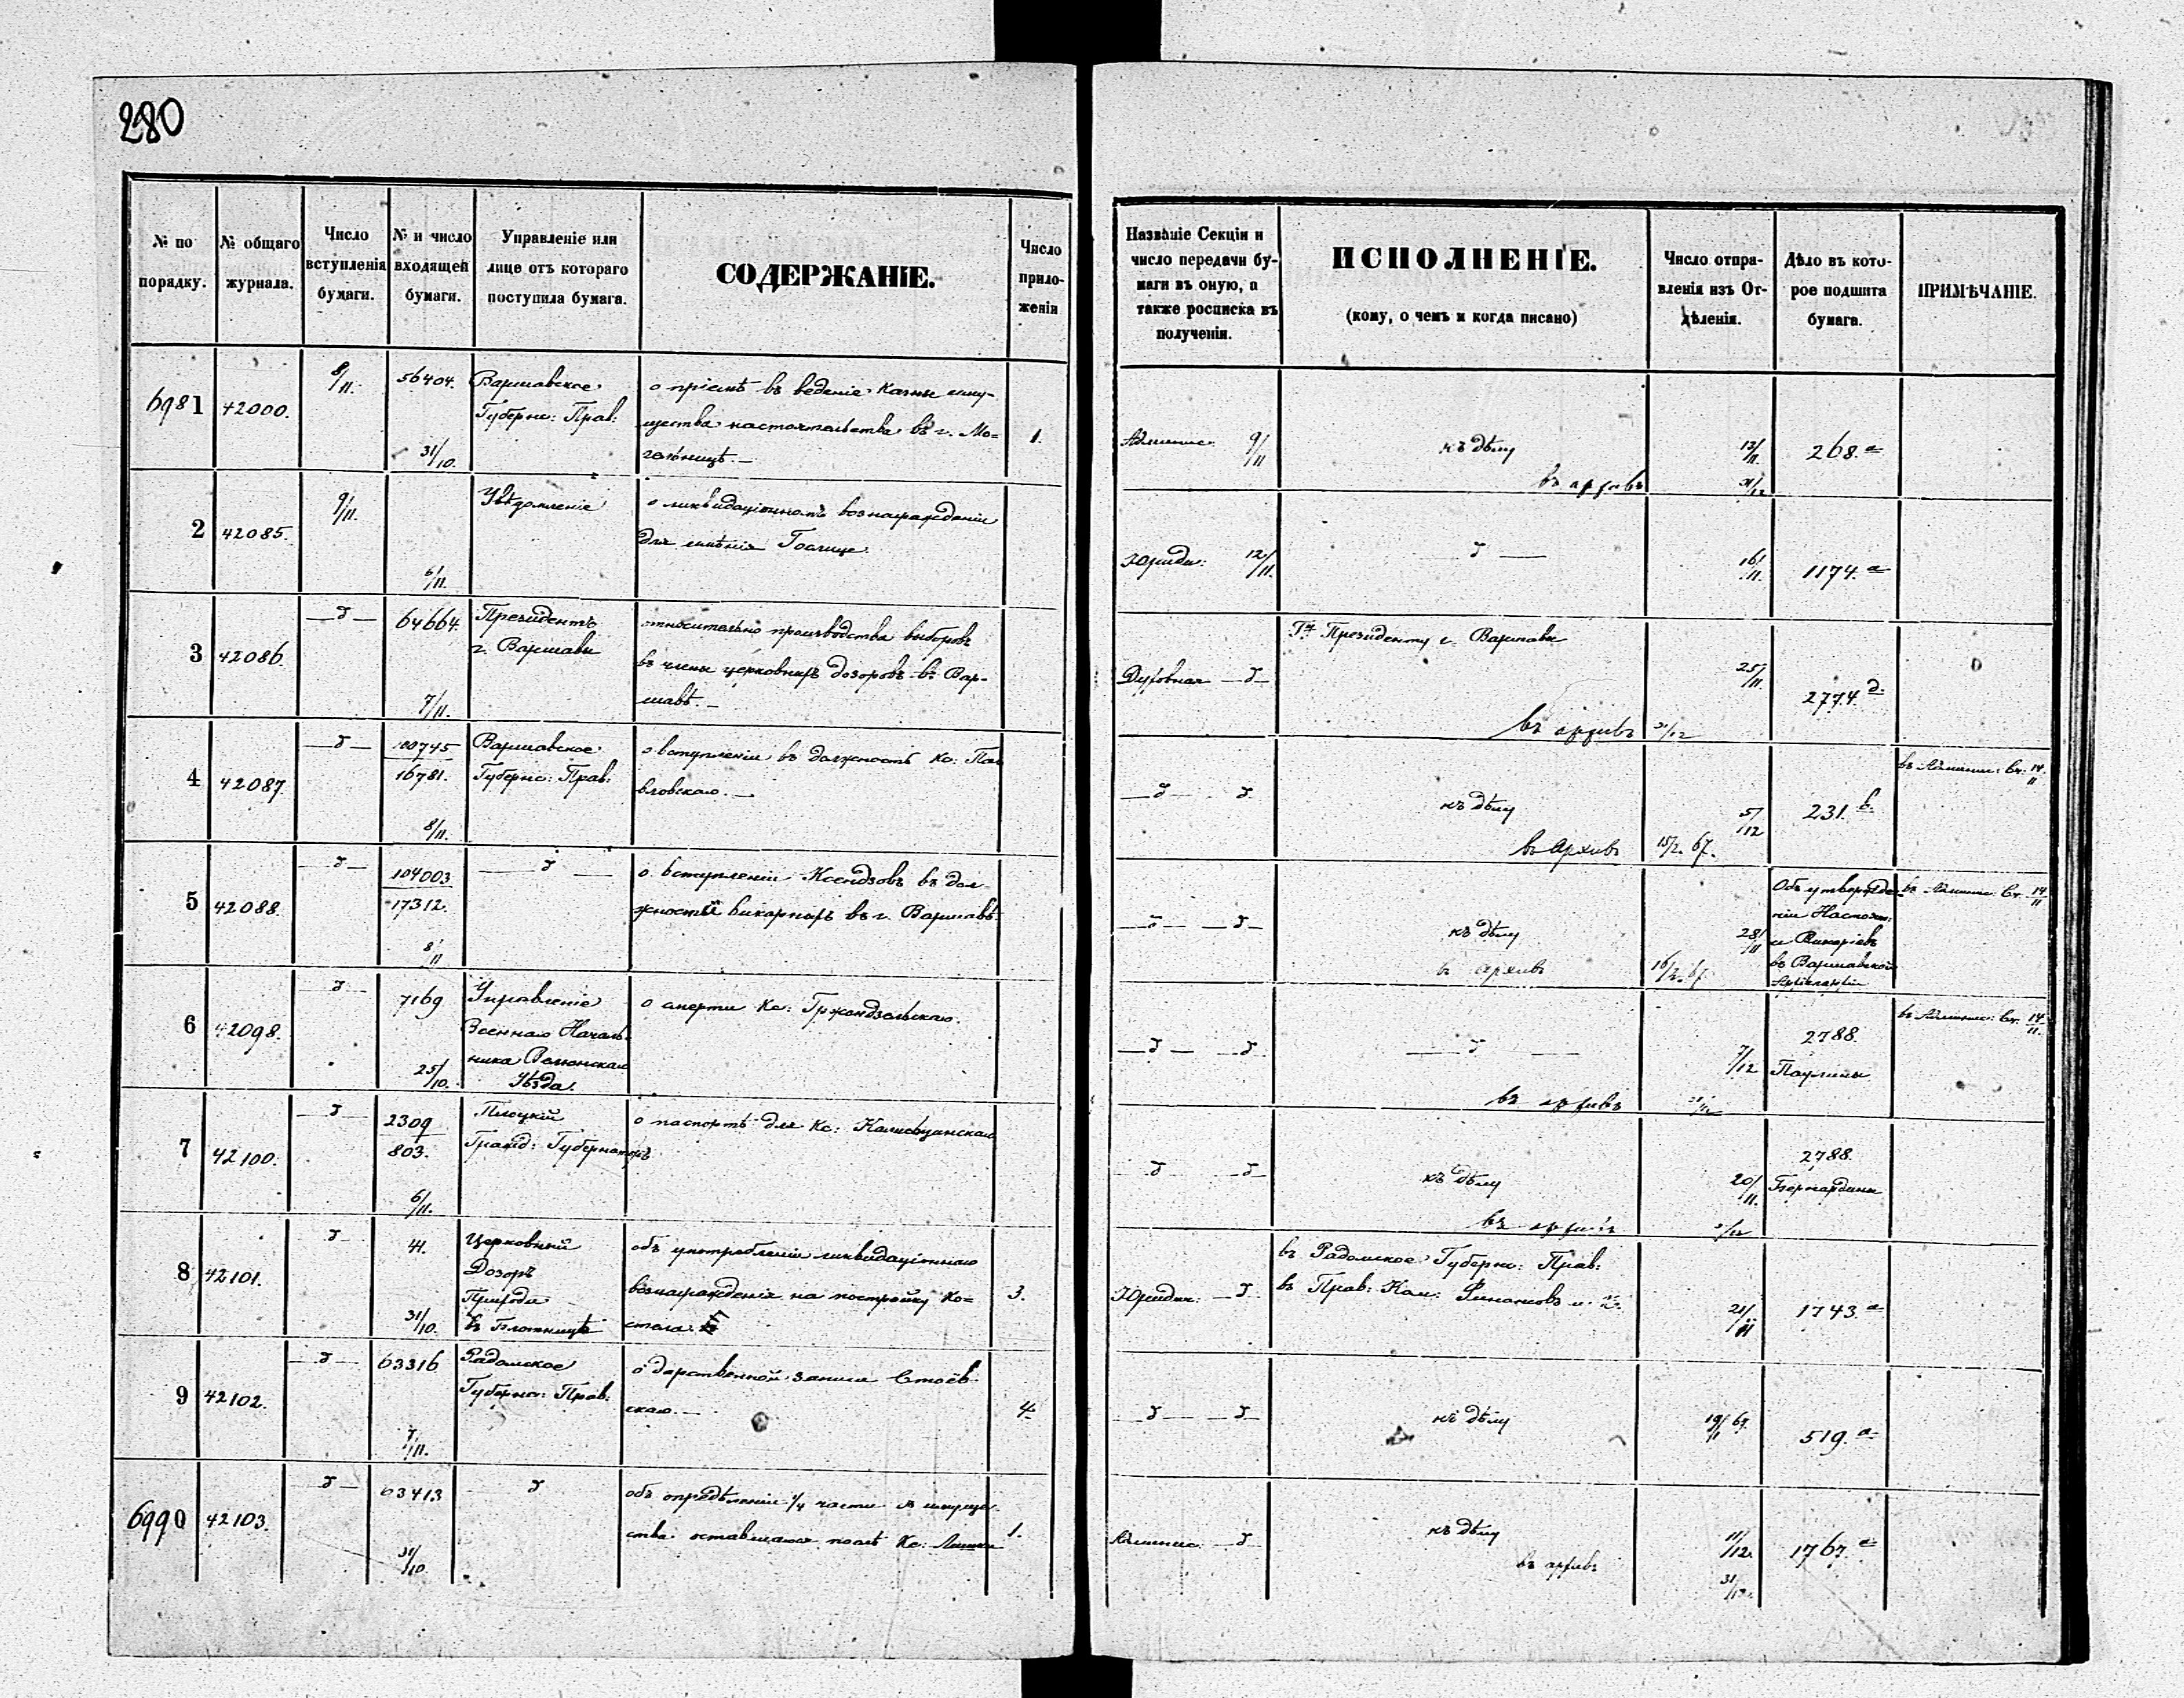 280
№ по порядку.
№ общаго журнала.
Число вступленія бумаги.
№ и число входящей бумаги.
Управленіе или лице отъ котораго поступила бумага.
СОДЕРЖАНІЕ.
Число приложеній
Названіе Секціи и число передачи бумаги въ оную, а также росписка въ полученіи.
ИСПОЛНЕНІЕ.
(кому, о чемъ и когда писано)
Число отправленія изъ Отдѣленія.
Дѣло въ которое подшита бумага.
ПРИМѢЧАНІЕ.
6981 42000. 8/11. 56404. Варшавское
Губернс: Прав:
31/10.
о пріемѣ въ веденіе Казны иму-
щества настоятельства въ г. Мо-
гельницѣ.—
1.
Админис: 9/11
къ дѣлу
13/11.
268.а
въ архивъ 31/12
2 42085. 9/11. Увѣдомленіе
6/11.
о ликвидаціонномъ вознагражденіи
для имѣнія
Юриди: 12/11.
—д—
16/11.
1174.а
3 42086. —д— 64664. Президентъ
г. Варшавы
7/11.
относительно производства выборовъ
въ члены церковныхъ дозоровъ въ Вар-
шавѣ.—
Духовная —д—
Гну Президенту г. Варшавы
25/11.
2774.д.
въ архивъ 31/12
4 42087. —д— 100745
16781.
8/11.
Варшавское
Губернс: Прав:
о вступленіи въ должность Кс: Па-
вловскаго.—
—д— д.
къ дѣлу
5/12
231.б.
въ Админис: Вч. 14/11
въ Архивъ 15/2. 67.
5 42088. —д— 104003
17312.
8/11
—д—
о вступленіи Ксендзовъ въ дол-
жностй викарныхъ въ г. Варшавѣ.
—д— —д—
къ дѣлу
28/11
Объ утвержде-
ніи Настоят:
и Викаріевъ
въ Варшавской
въ Админис: Вч. 14/11
въ архивъ 16/2. 67.
6 42098. д— 7169
25/10.
Управленіе
Военнаго Началь-
ника Велюнскаго
Уѣзда.
о смерти Кс: Гржондзельскаго.
—д— —д.
—д—
7/12
2788.
Паулины
въ Админис: Вч. 14/11.
въ архивъ 31/12
7 42100. —д— 2309
803.
6/11.
Плоцкій
Гражд: Губернаторъ
о паспортѣ для Кс:
—д —д—
къ дѣлу
20/11.
2788.
Бернардины
въ архивъ
8 42101. д— 41.
31/10.
Церковный
Дозоръ
Прихода
въ Блотницѣ
объ употребленіи ликвидаціоннаго
вознагражденія на постройку ко-
стела.
3.
Юридич: —д
въ Радомское Губернс: Прав:
въ Прав: Ком: Финансовъ и.
21/11
1743.а
9 42102. —д— 63316
7/11.
Радомское
Губернс: Прав:
о дарственной записи Стоев-
скаго.—
4.
—д— —д—
къ дѣлу
19/11 67.
519.а
6990 42103. д— 63413
31/10.
д
объ опредѣленіи 1/4 части имуще-
ства оставшагося послѣ Кс:
1.
Админис: —д
къ дѣлу
11/12.
1767.а
въ архивъ
31/12.